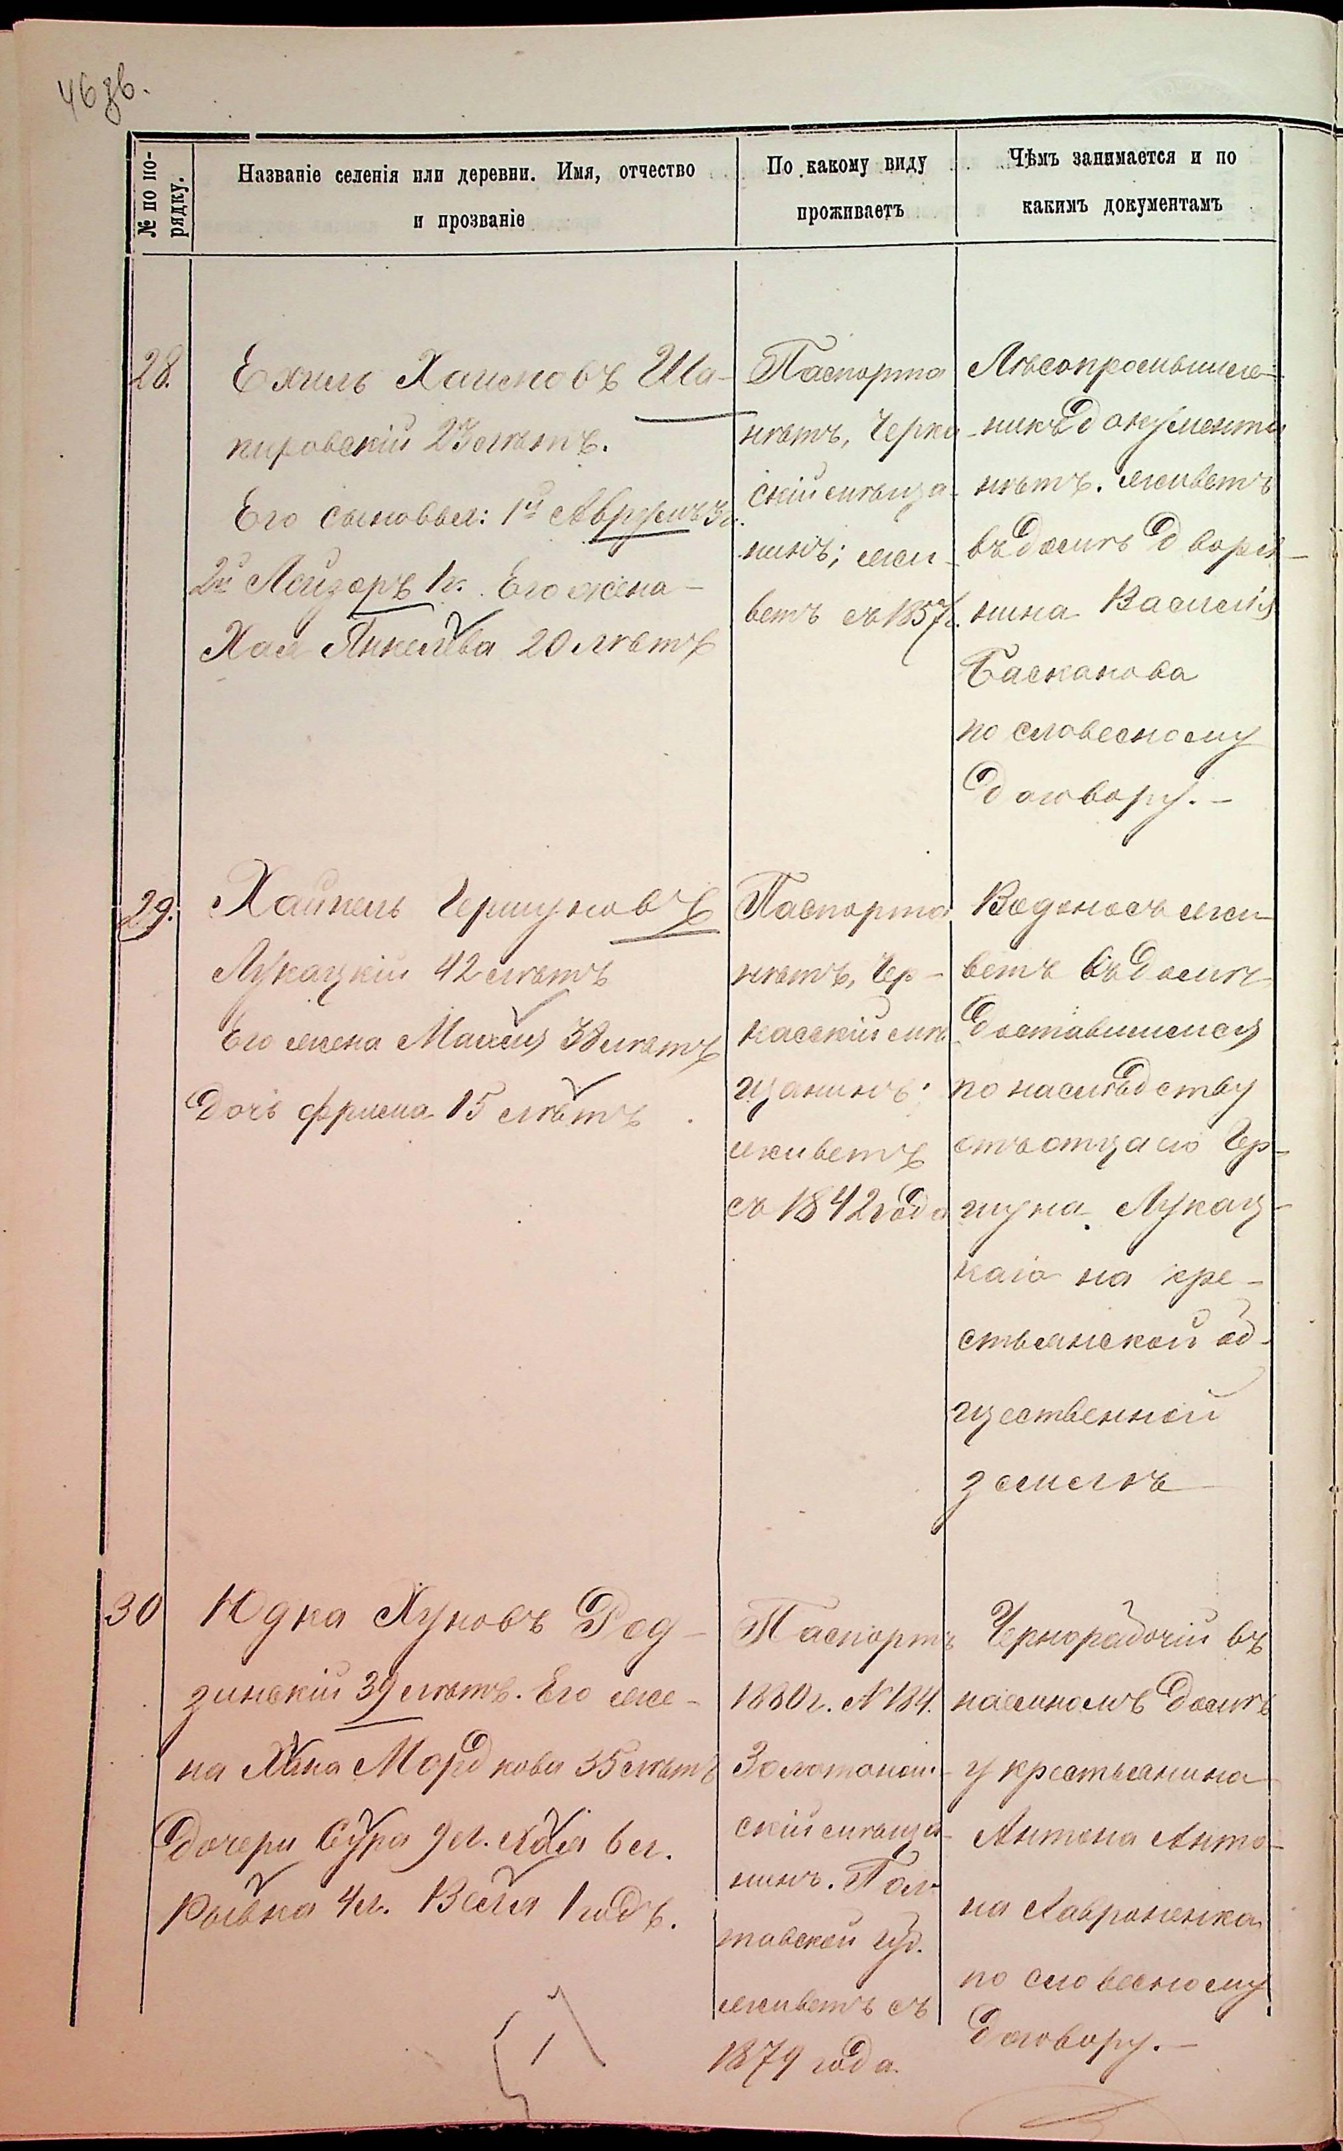 46 зв.
№ по по-
рядку.
Названіе селенія или деревни. Имя, отчество
и прозваніе
По какому виду
проживаетъ
Чѣмъ занимается и по
какимъ документамъ
28.
Ехиль Хаимовъ Ша-
пировскій 23 лѣтъ.
Его сыновья: 1й Аврумъ 3 г.
2й Лейзеръ 1 г. Его жена
Хая Янкелева 20 лѣтъ
Паспорта
нѣтъ, Черка-
скій мѣща-
нинъ; жи-
ветъ съ 1857 г.
Лѣсопромышлен-
никъ документа
нѣтъ. живетъ
въ домѣ дворя-
нина Василія
Басканова
по словесному
договору. -
29.
Хаипель Гершуновъ
Лукацкій 42 лѣтъ
Его жена 38 лѣтъ
Дочь Фрима 15 лѣтъ
Паспорта
нѣтъ, Чер-
каскій мѣ-
щанинъ;
живетъ
съ 1842 года
Водоносъ жи-
ветъ въ домѣ
доставшимся
по наслѣдству
отъ отца его Гер-
шуна Лукац-
каго на кре-
стьянской об-
щественной
землѣ
30
Юдка Хуновъ Род-
зинскій 39 лѣтъ. Его же-
на Хана Мордкова 35 лѣтъ
Дочери Сура 9 л. Хая 6 л.
Рывка 4 л. Бейля 1 годъ.
Паспортъ
1880 г. № 184.
Золотонош-
скій мѣща-
нинъ. Пол-
тавской губ.
живетъ съ
1879 года.
Чернорабочій въ
наемномъ домѣ
у крестьянина
Антона Анто-
на Лавроненка
по словесному
договору. -